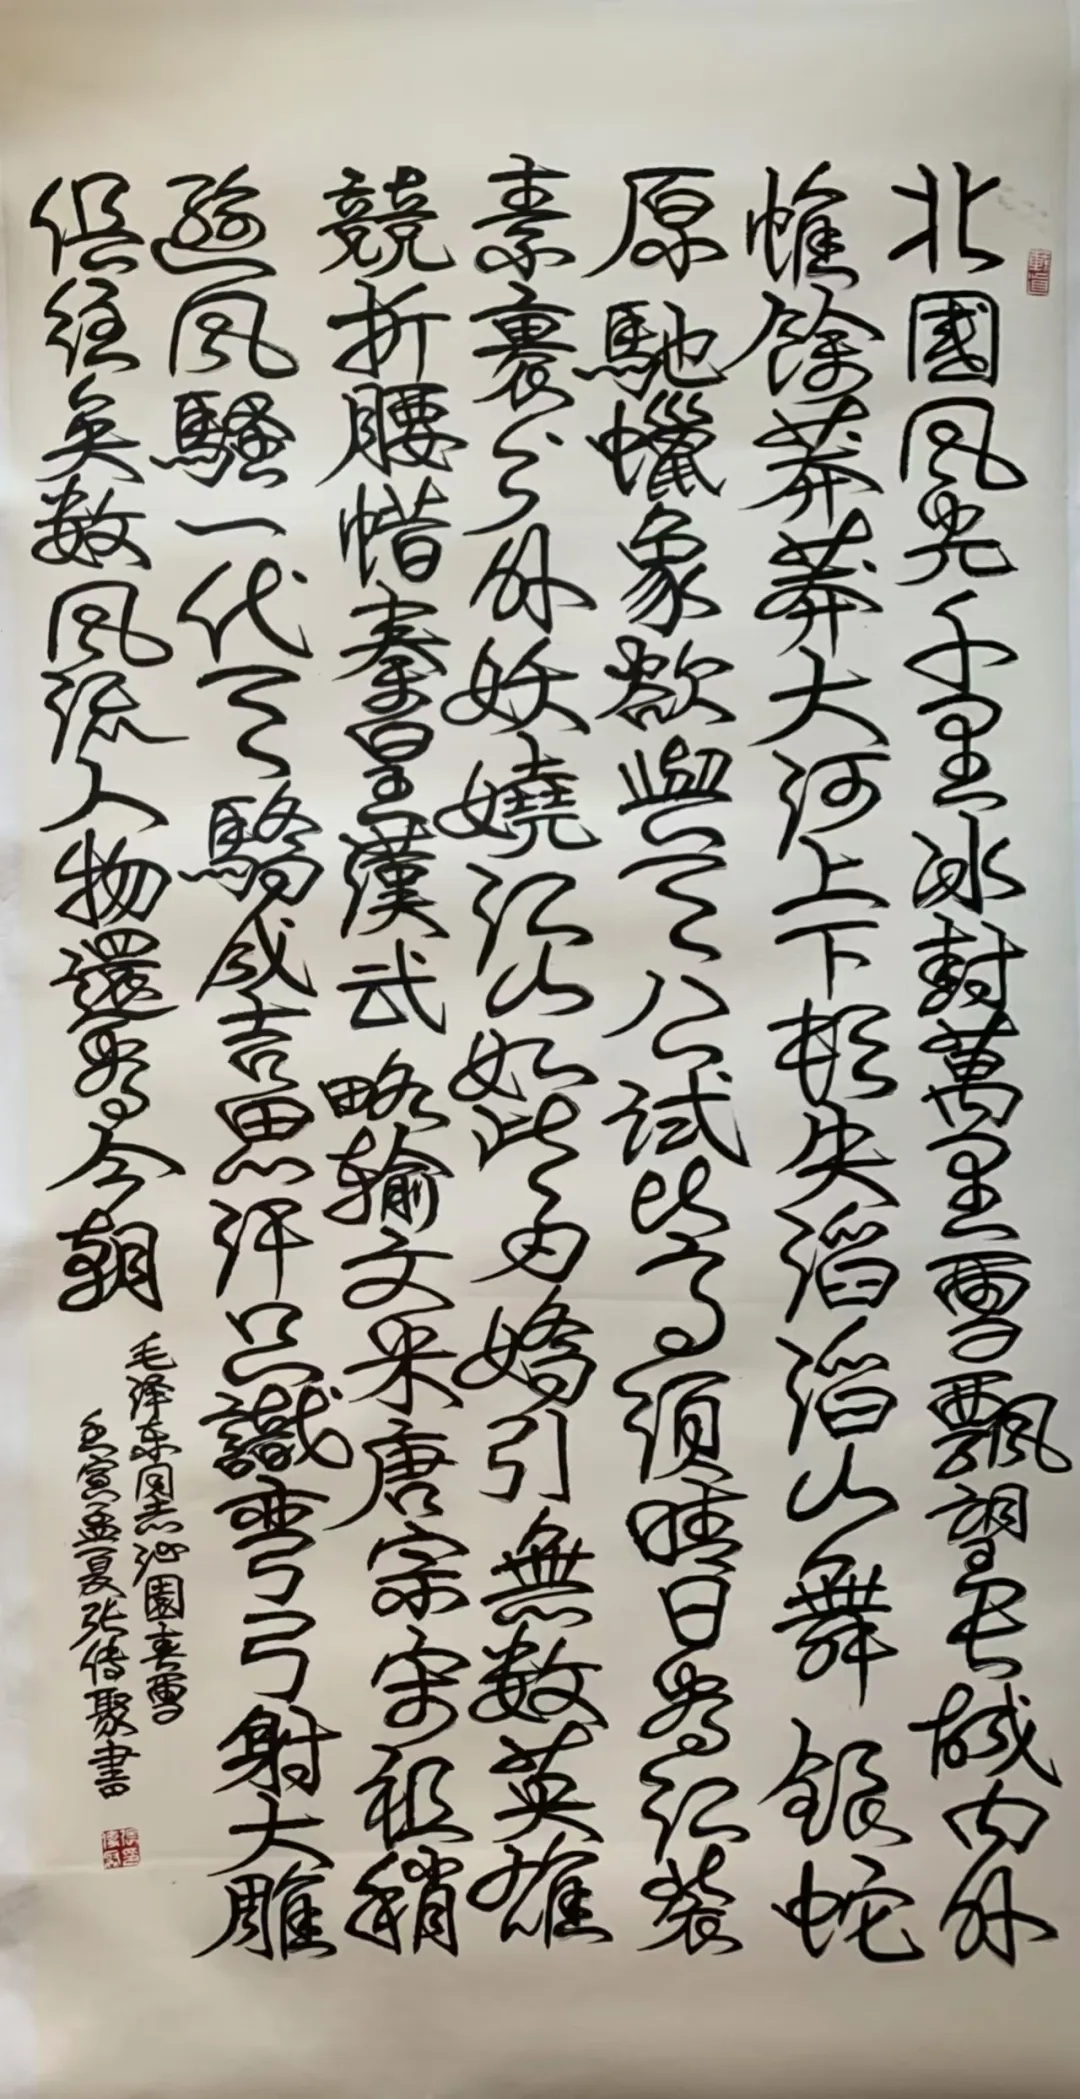 北國風光千里冰封萬里雪飄望長城内外
惟餘莽莽大河上下頓失滔滔山舞銀蛇
原馳蠟象欲與天公試比高須晴日看紅裝
素裹分外妖嬈江山如此多嬌引無數英雄
競折腰惜秦皇漢武略輸文采唐宗宋祖稍
遜風騷一代天驕成吉思汗只識彎弓射大雕
俱往矣数風流人物還看今朝
毛泽东同志沁園春雪
壬寅孟夏张传聚書